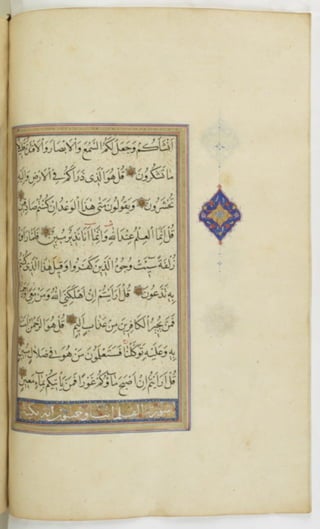 أنشأكم وجعل لكم السمع والأبصار والأفئدة قليلا
ما تشكرون قل هو الذي ذرأكم في الأرض وإليه
تحشرون ويقولون متى هذا الوعد إن كنتم صادقين
قل إنما العلم عند الله وإنما أنا نذير مبين فلما رأوه
زلفة سيئت وجوه الذين كفروا وقيل هذا الذي كنتم
به تدعون قل أرأيتم إن أهلكني الله ومن معي
فمن يجير الكافرين من عذاب أليم قل هو الرحمن آمنا
به وعليه توكلنا فستعلمون من هو في ضلال مبين
قل أرأيتم إن أصبح ماؤكم غورا فمن يأتيكم بماء معين
سورة القلم اثنتا وخمسون آية مكية